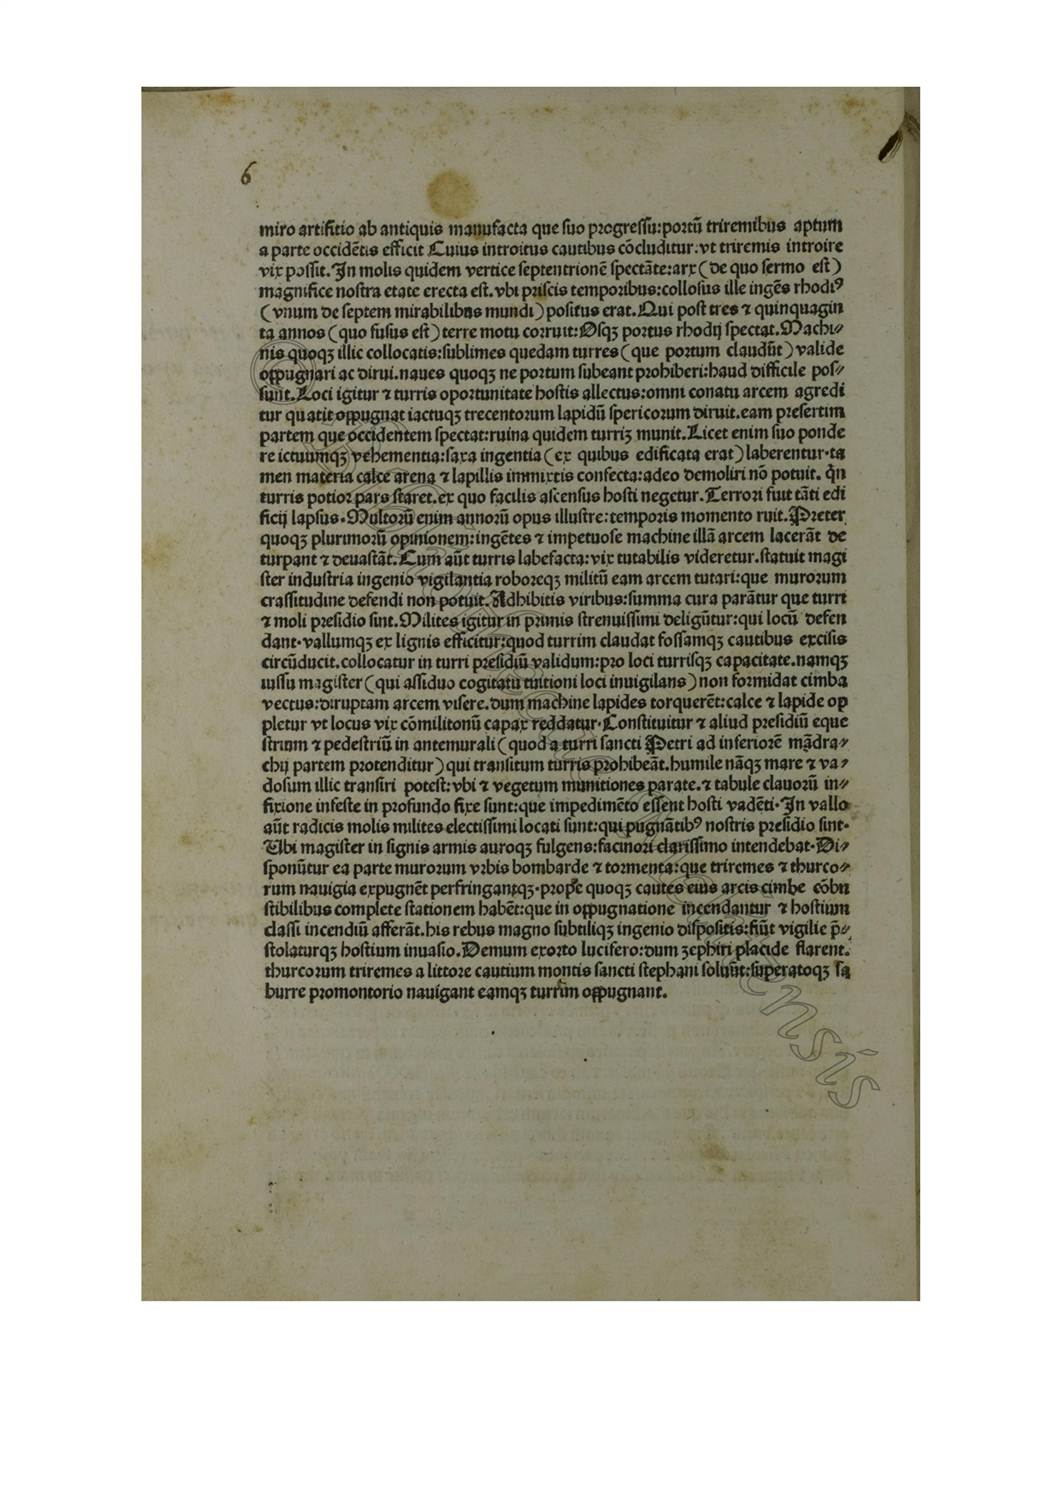 6
miro artifitio ab antiquis manufacta que suo progressu:portū triremibus aptum
a parte occidētis efficit Cuius introitus cautibus cōcluditur:vt triremis introire
vix possit.In molis quidem vertice septentrionē spectāte:arx (de quo sermo est)
magnifice nostra etate erecta est.vbi priscis temporibus:collosus ille ingēs rhodiꝰ
(vnum de septem mirabilibus mundi) positus erat.Qui post tres ⁊ quinquagin
ta annos (quo fusus est) terre motu corruit:Osqꝫ portus rhodij spectat.Machi⸗
nis quoqꝫ illic collocatis:sublimes quedam turres (que portum claudūt) valide
oppugnari ac dirui.naues quoqꝫ ne portum subeant prohiberi:haud difficile pos⸗
sunt.Loci igitur ⁊ turris oportunitate hostis allectus:omni conatu arcem agredi
tur quatit oppugnat iactuqꝫ trecentorum lapidū spericorum diruit.eam presertim
partem que occidentem spectat:ruina quidem turriꝫ munit.Licet enim suo ponde
re ictuumqꝫ vehementia:saxa ingentia (ex quibus edificata erat) laberentur.ta
men materia calce arena ⁊ lapillis immixtis confecta:adeo demoliri nō potuit. qn̄
turris potior pars staret.ex quo facilis ascensus hosti negetur.Terrori fuit tāti edi
ficij lapsus.Multorū enim annorū opus illustre:temporis momento ruit.Preter
quoqꝫ plurimorū opinionem:ingētes ⁊ impetuose machine illā arcem lacerāt de
turpant ⁊ deuastāt.Cum aūt turris labefacta:vix tutabilis videretur.statuit magi
ster industria ingenio vigilantia roboreqꝫ militū eam arcem tutari:que murorum
crassitudine defendi non potuit.Adhibitis viribus:summa cura parātur que turri
⁊ moli presidio sint.Milites igitur in primis strenuissimi deligūtur:qui locū defen
dant.vallumqꝫ ex lignis efficitur:quod turrim claudat fossamqꝫ cautibus excisis
circūducit.collocatur in turri presidiū validum:pro loci turrisqꝫ capacitate.namqꝫ
iussu magister (qui assiduo cogitatu tuitioni loci inuigilans) non formidat cimba
vectus:diruptam arcem visere.dum machine lapides torquerēt:calce ⁊ lapide op
pletur vt locus vix cōmilitonū capax reddatur.Constituitur ⁊ aliud presidiū eque
strium ⁊ pedestriū in antemurali (quod a turri sancti Petri ad inferiorē mādra⸗
chij partem protenditur) qui transitum turris prohibeāt.humile nāqꝫ mare ⁊ va⸗
dosum illic transiri potest:vbi ⁊ vegetum munitiones parate.⁊ tabule clauorū in⸗
fixione infeste in profundo fixe sunt:que impedimēto essent hosti vadēti.In vallo
aūt radicis molis milites electissimi locati sunt:qui pugnātibꝰ nostris presidio sint.
Ubi magister in signis armis auroqꝫ fulgens:facinori clarissimo intendebat.Di⸗
sponūtur ea parte murorum vrbis bombarde ⁊ tormenta:que triremes ⁊ thurco⸗
rum nauigia expugnēt perfringantqꝫ.prope quoqꝫ cautes eius arcis cimbe cōbu
stibilibus complete stationem habēt:que in oppugnatione incendantur ⁊ hostium
classi incendiū afferāt.his rebus magno subtiliqꝫ ingenio dispositis:fiūt vigilie p̄⸗
stolaturqꝫ hostium inuasio.Demum exorto lucifero:dum zephiri placide flarent.
thurcorum triremes a littore cautium montis sancti stephani soluūt:superatoqꝫ sa
burre promontorio nauigant eamqꝫ turrim oppugnant.